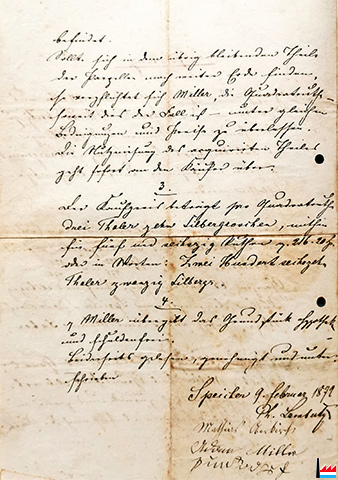 befindet.
Sollte sich in dem übrig bleibenden Theile
der Parzelle noch weiter Erde finden,
so verpflichtet sich Miller, die Quadratruthe
soweit dies der Fall ist – unter gleichen
Bedingungen und Preise zu überlassen.
Die Nutznießung des acquirirten Theiles
geht sofort an den Käufer über.
3.
Der Kaufpreis beträgt pro Quadratruthe
drei Thaler zehn Silbergroschen, mithin
für fünf und sechszig Ruthen
oder in Worten: Zwei Hundert sechszehn
Thaler zwanzig Silbergr.
4.
Miller übergibt das Grundstück hypothek
und schuldenfrei.
Beiderseits gelesen, genehmigt und unter-
schrieben
Speicher 9. Februar
Ph.
Mathias
Adam Miller